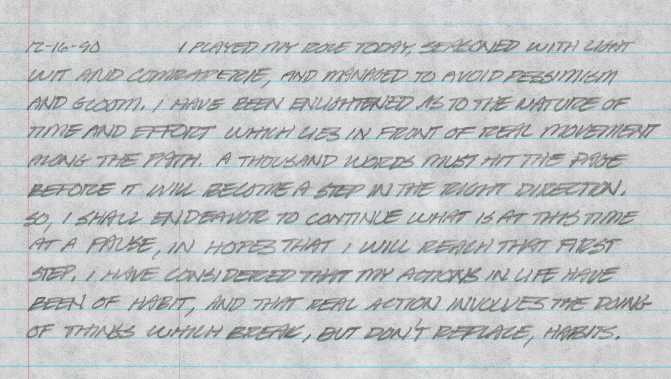 12-16-90 I PLAYED MY ROLE TODAY, SEASONED WITH LIGHT
WIT AND COMRADERIE, AND MANAGED TO AVOID PESSIMISM
AND GLOOM. I HAVE BEEN ENLIGHTENED AS TO THE NATURE OF
TIME AND EFFORT WHICH LIES IN FRONT OF REAL MOVEMENT
ALONG THE PATH. A THOUSAND WORDS MUST HIT THE PAGE
BEFORE IT WILL BECOME A STEP IN THE RIGHT DIRECTION.
SO, I SHALL ENDEAVOR TO CONTINUE WHAT IS AT THIS TIME
AT A PAUSE, IN HOPES THAT I WILL REACH THAT FIRST
STEP. I HAVE CONSIDERED THAT MY ACTIONS IN LIFE HAVE
BEEN OF HABIT, AND THAT REAL ACTION INVOLVES THE DOING
OF THINGS WHICH BREAK, BUT DON'T REPLACE, HABITS.